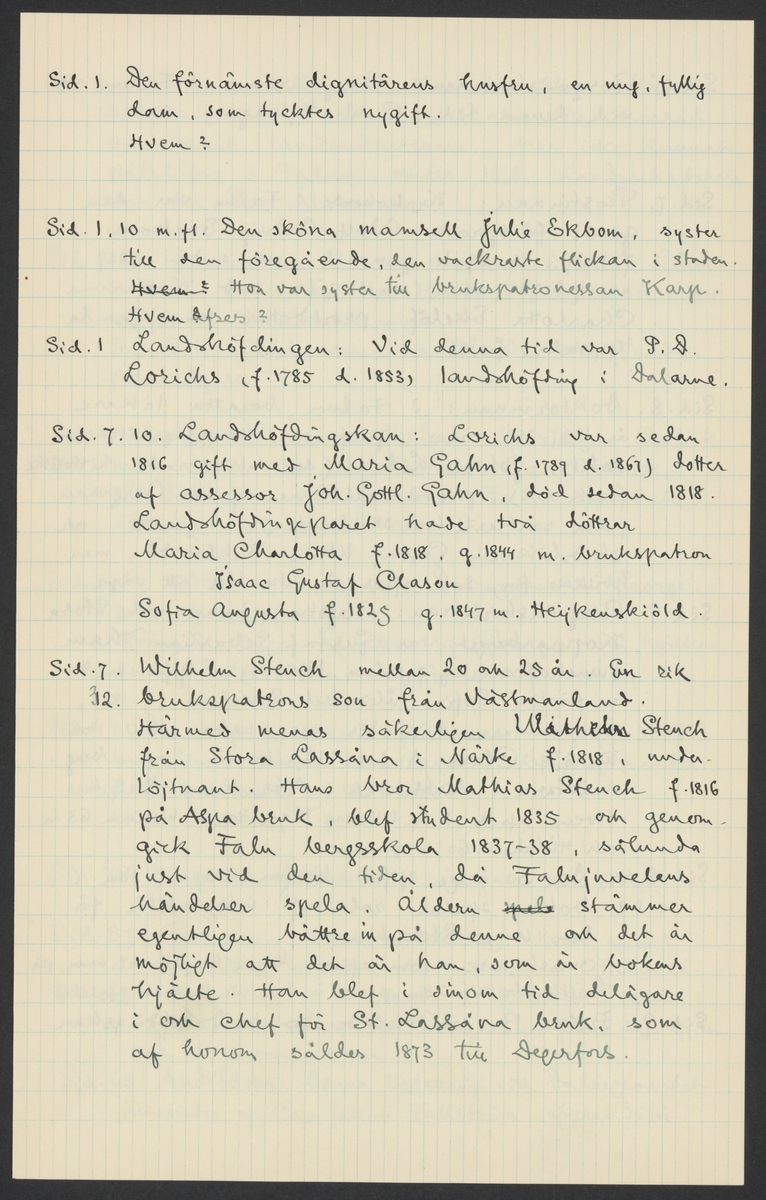 Sid. 1. Den förnämste dignitärens husfru, en ung, fyllig
dam, som tycktes nygift.
Hvem?
Sid. 1, 10 m.fl. Den sköna mamsell Julie Ekbom, syster
till den föregående, den vackraste flickan i staden.
Hvem? Hon var syster till brukspatronessan Karp.
Hvem afses?
Sid. 1 Landshöfdingen: Vid denna tid var P. D.
Lorichs (f. 1785 d. 1853) landshöfding i Dalarne.
Sid. 7. 10. Landshöfdingskan: Lorichs var sedan
1816 gift med Maria Gahn (f. 1789 d. 1867) dotter
af assessor Joh. Gottl. Gahn, död sedan 1818.
Landshöfdingparet hade två döttrar
Maria Charlotta f. 1818, g. 1844 m. brukspatron
Isaac Gustaf Clason
Sofia Augusta f. 1825 g. 1847 m. Heijkenskiöld.
Sid. 7. Wilhelm Stench mellan 20 och 25 år. En rik
12. brukspatrons son från Västmanland.
Härmed menas säkerligen Wilhelm Stench
från Stora Lassåna i Närke f. 1818, under-
löjtnant. Hans bror Mathias Stench f. 1816
på Aspa bruk, blef student 1835 och genom-
gick Falu bergsskola 1837-38, sålunda
just vid den tiden, då Falujuvelens
händelser spela. Åldern spela stämmer
egentligen bättre in på denne och det är
möjligt att det är han, som är bokens
hjälte. Han blef i sinom tid delägare
i och chef för St. Lassåna bruk, som
af honom såldes 1873 till Degerfors.